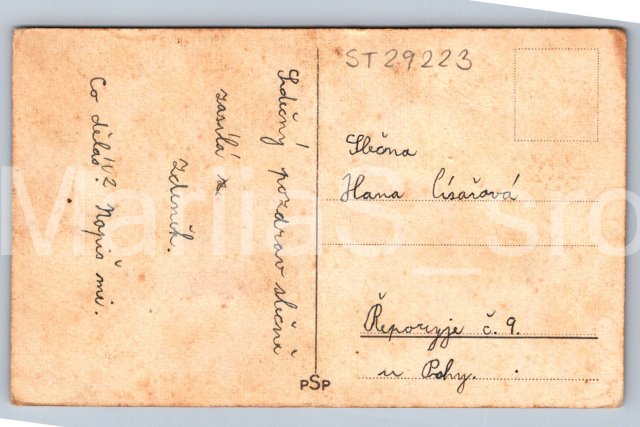 Srdečný pozdrav slečně
zasílá
Zdeněk.
Co děláš? Napiš mi.
ST29223
Slečna
Hana Císařová
Řeporyje č. 9.
u Prahy.
PSP
MariiaS_sro